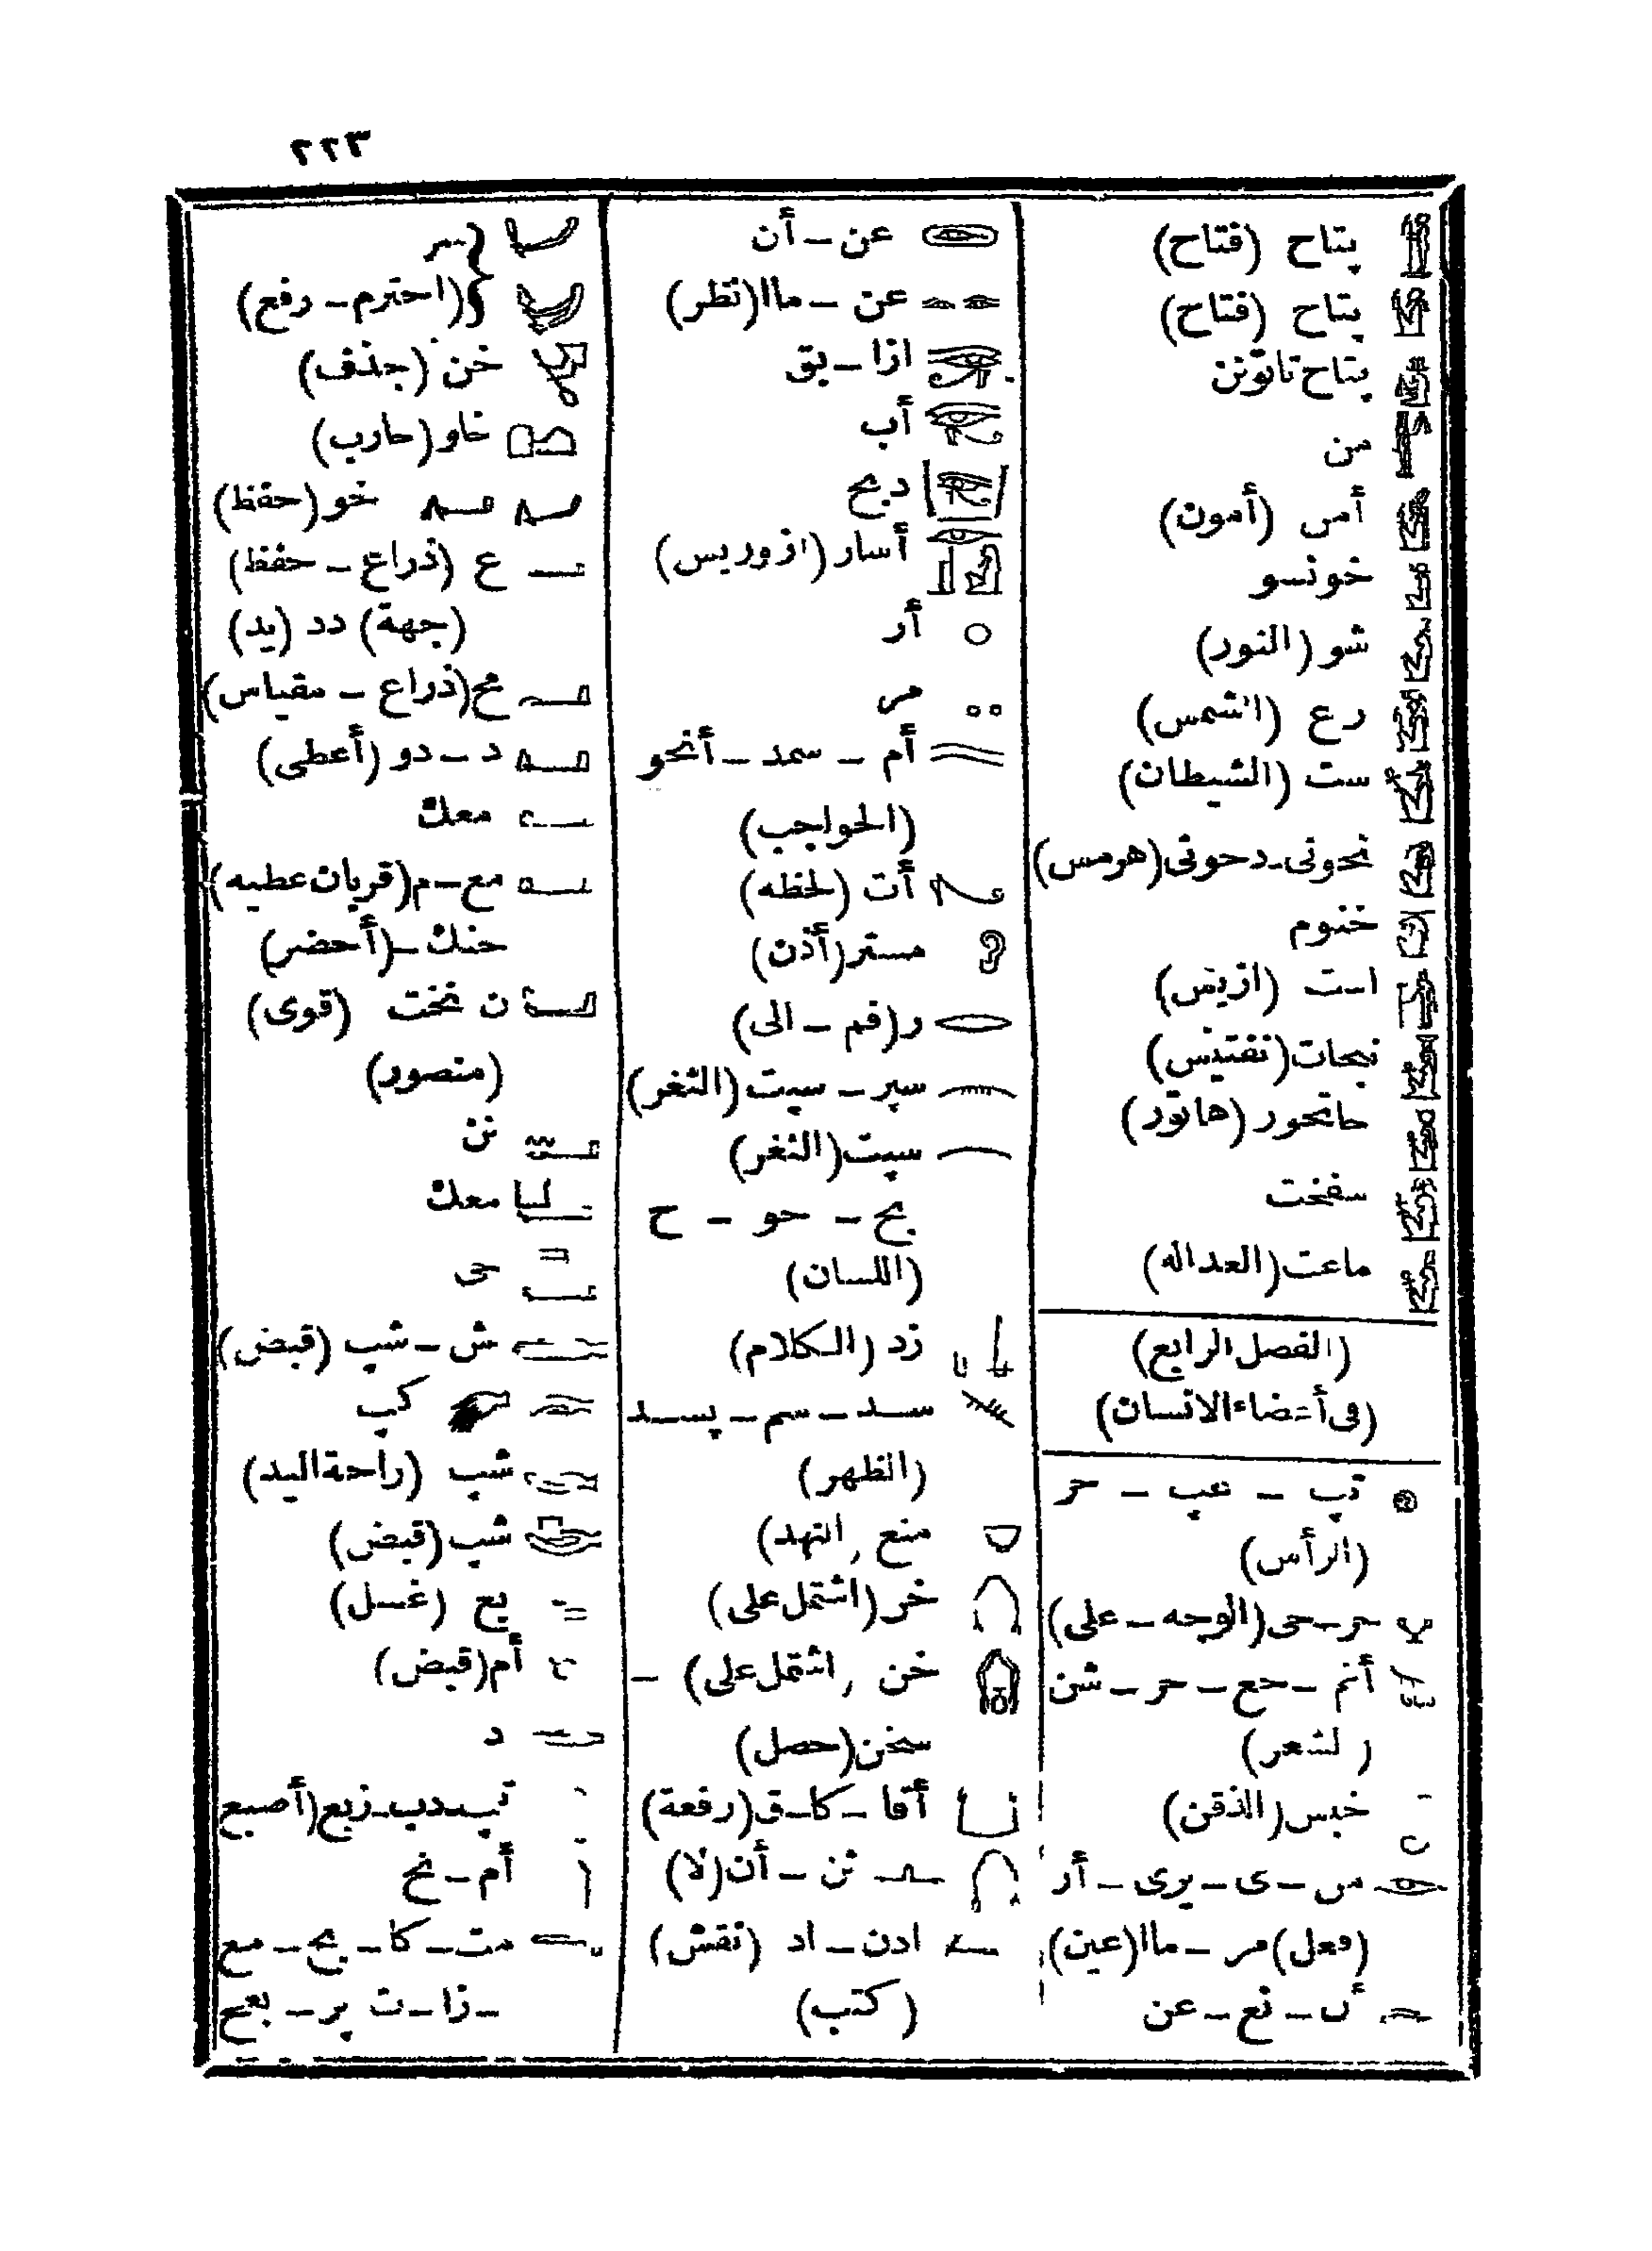 ٢٢٣
پتاح (فتاح)
پتاح (فتاح)
پتاح تاتونن
من
أمس (أمون)
خونسو
شو (النور)
رع (الشمس)
ست (الشيطان)
تحوتى-دحوتى (هرمس)
خنوم
است (ازيس)
نبحات (نفتيس)
حاتحور (هاتور)
سفخت
ماعت (العداله)
(الفصل الرابع)
(فى أعضاء الانسان)
تپ - عپ - حر
(الرأس)
حر-حى (الوجه - على)
أنم - حع - حر - شن
(الشعر)
خبس (الذقن)
مس - ى - يرى - أر
(فعل) مر - ماا (عين)
- نع - عن
عن - أن
عن - ماا (نظر)
ازا - بق
أب
دبح
أسار (ازوريس)
أر
مر
أم - سمد - أنحو
(الحواجب)
أت (لحظه)
مستر (أذن)
ر (فم - الى)
سپر - سپت (الثغر)
سپت (الثغر)
بح - حو - ح
(اللسان)
زد (الكلام)
سد - سم - پسد
(الظهر)
منع (النهد)
خر (اشتمل على)
خن (اشتمل على) -
سخن (حصل)
أقا - كا - ق (رفعة)
نن - أن (لا)
ادن - اد (نقش)
(كتب)
(احترم - رفع)
خن (جذف)
خاو (حارب)
خو (حفظ)
ع (ذراع - حفظ)
(جهة) دد (يد)
مح (ذراع - مقياس)
د - دو (أعطى)
معك
مع - م (قربان عطيه)
حنك - (أحضر)
ن نخت (قوى)
(منصور)
نن
معك
حى
ش - شپ (قبض)
كپ
شپ (راحة اليد)
شپ (قبض)
يع (غسل)
أم (قبض)
د
تب-دب-زبع (أصبع
أم - نح
مت - كا - بح - مع
- زا - ت پر - بعح